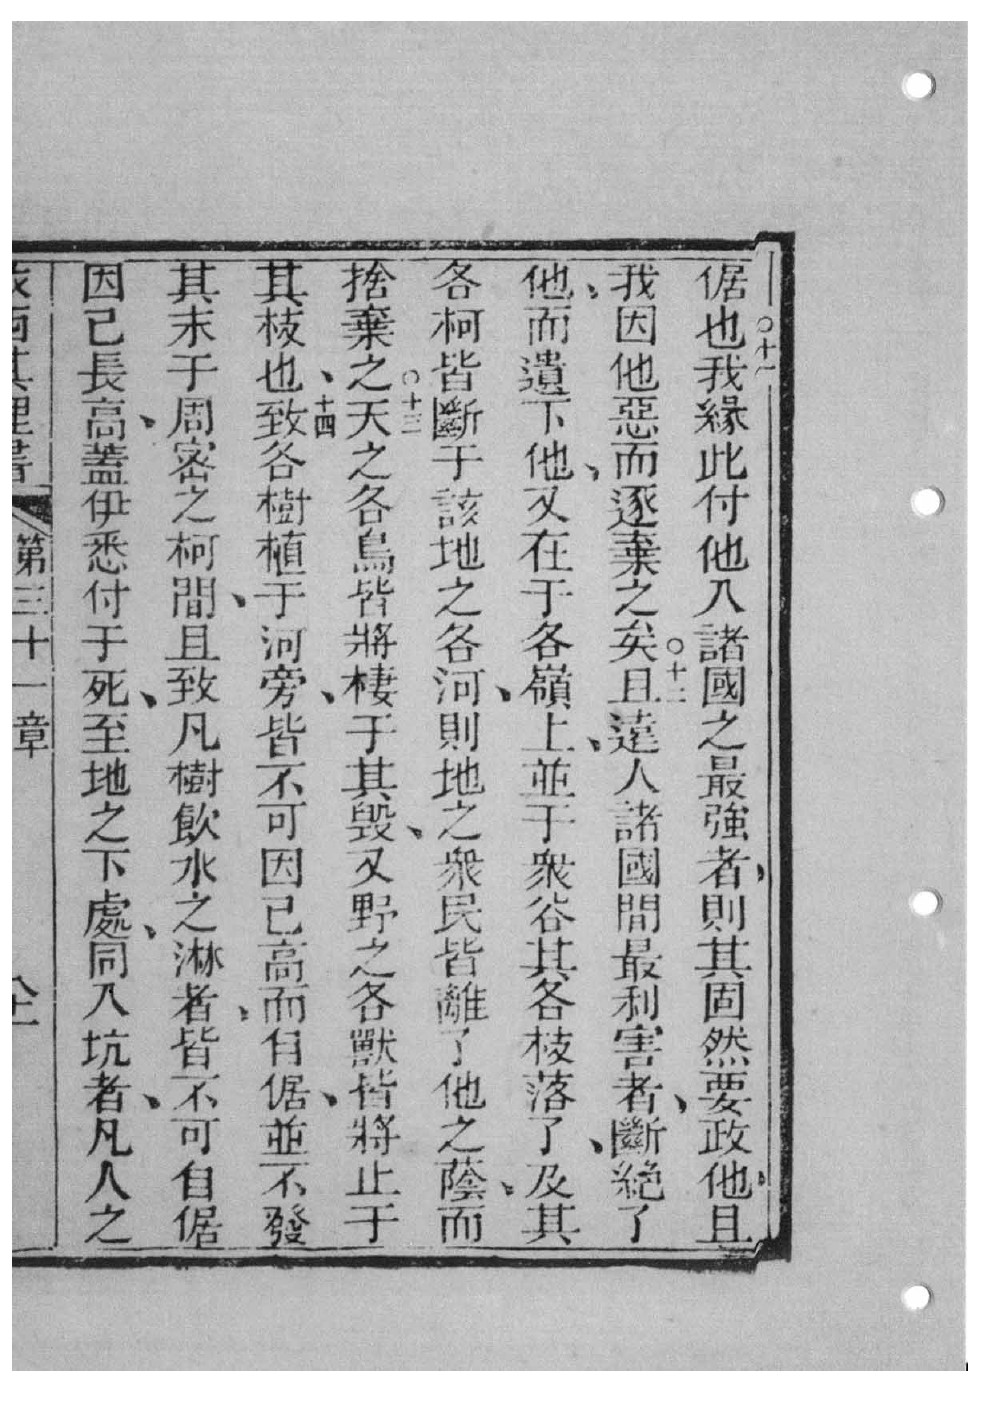 倨也○十一我緣此付他入諸國之最強者、則其固然要政他、且
我因他惡而逐棄之矣○十二且遠人諸國間最利害者、斷絕了
他、而遺下他、又在于各嶺上、並于衆谷其各枝落了、及其
各柯皆斷于該地之各河、則地之衆民皆離了他之蔭、而
捨棄之○十三天之各鳥皆將棲于其毀、又野之各獸皆將止于
其枝也、十四致各樹植于河旁、皆不可因己高而自倨、並不發
其末于周密之柯間、且致凡樹飲水之淋者、皆不可自倨
因己長高、蓋伊悉付于死、至地之下處、同入坑者、凡人之
西其理書 第三十一章